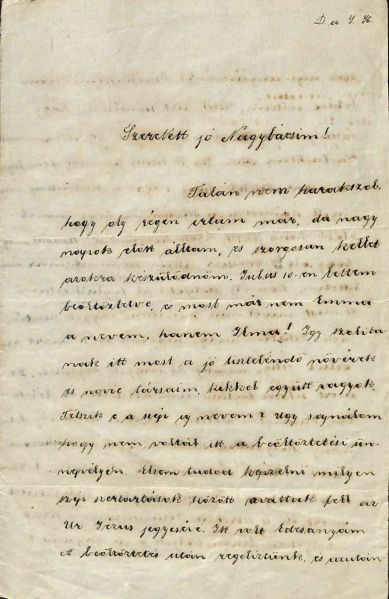 D a I. H.
Szeretett jó Nagybácsim!
Talán nem haragszol
hogy oly régen írtam már, de nagy
napok előtt álltam, és szorgosan kellett
azokra készülődnöm. Julius 10-én lettem
beöltöztetve, és most már nem Emma
a nevem, hanem Ilma! Így szólíta
nak itt most a jó tisztelendő nővérek
és novic társaim, kikkel együtt vagyok.
Tetszik e a szép új nevem? Úgy sajnálom
hogy nem voltál itt a beöltöztetési ün-
nepélyen. Elsem tudod képzelni milyen
szép szertartások között avattak fell az
Úr Jézus jegyesévé. Itt volt Édesanyám
A beöltöztetés után regeliztünk, és azután